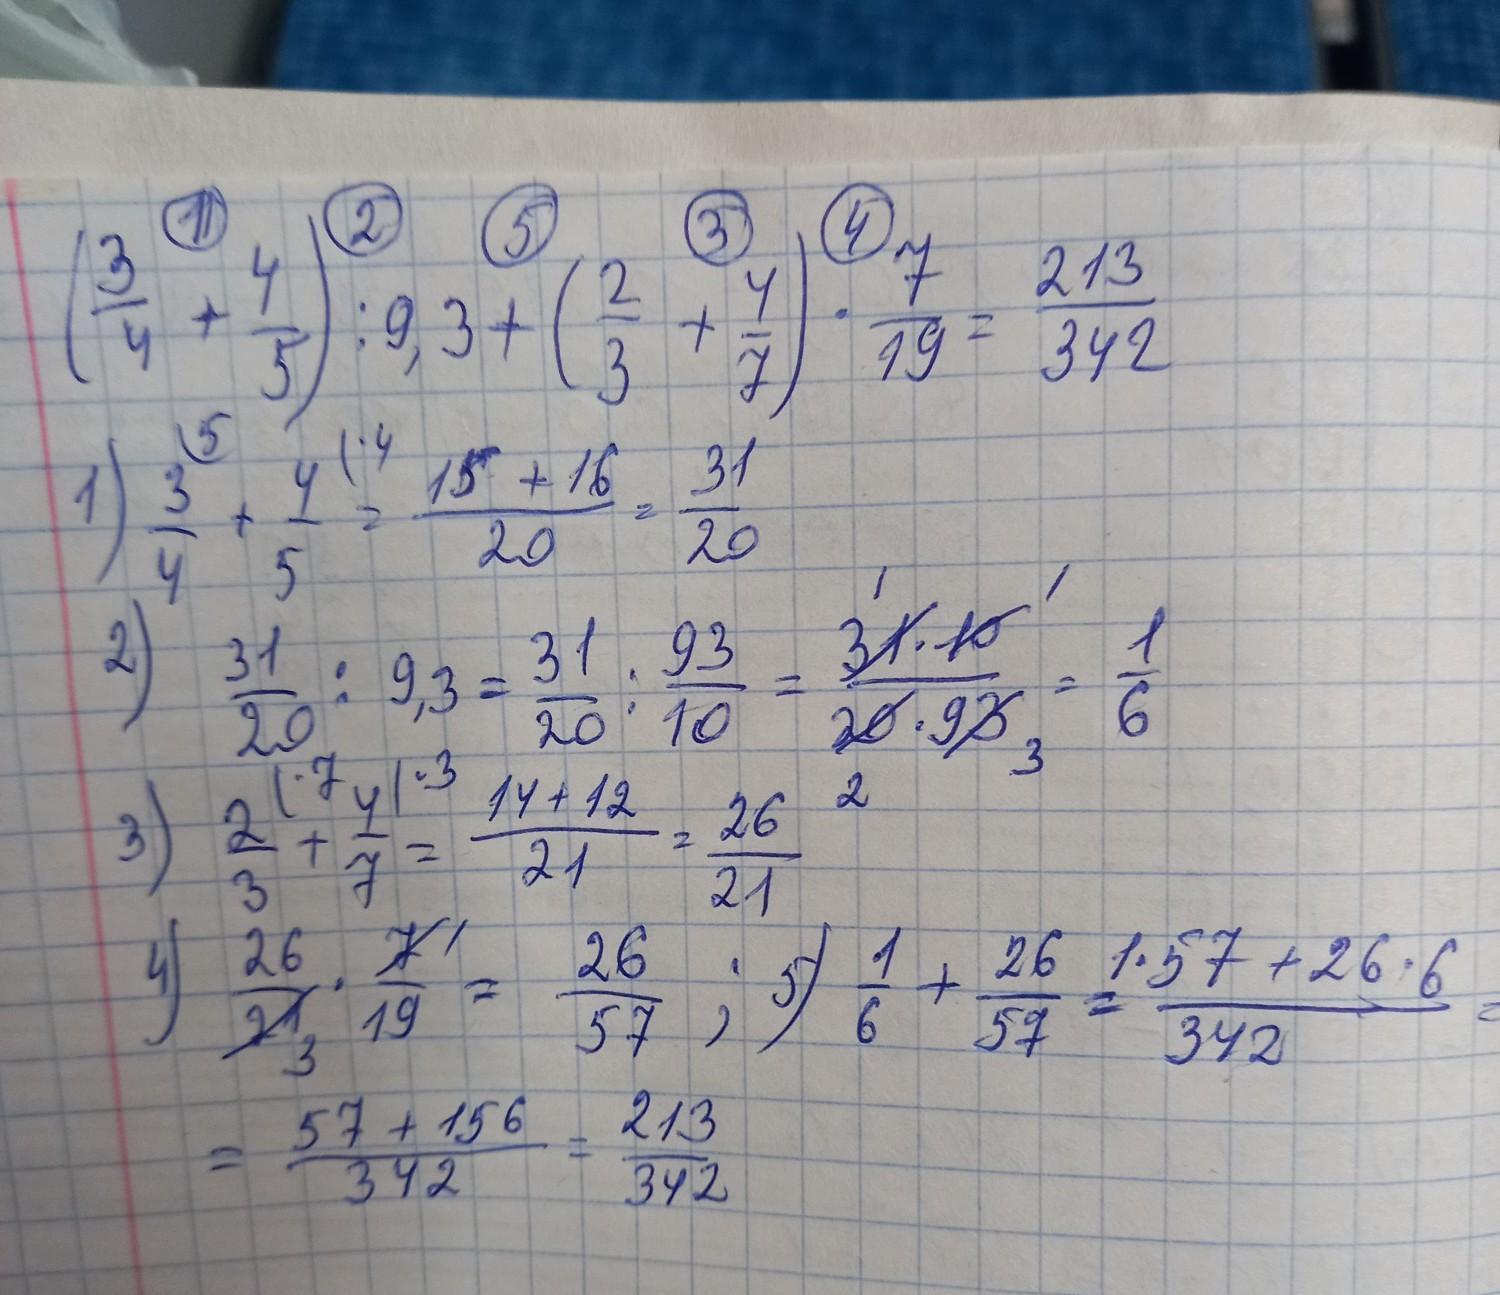 ① ② ⑤ ③ ④
(3/4 + 4/5) : 9,3 + (2/3 + 4/7) · 7/19 = 213/342
1) 3/4 (5 + 4/5 (·4 = 15 + 16/20 = 31/20
2) 31/20 : 9,3 = 31/20 : 93/10 = 31 · 10/20 · 93 1 1 2 3 = 1/6
3) 2/3 (·7 + 4/7 |·3 = 14 + 12/21 = 26/21
4) 26/21 3 · 7/19 1 = 26/57 ; 5) 1/6 + 26/57 = 1·57 + 26·6/342 =
= 57 + 156/342 = 213/342